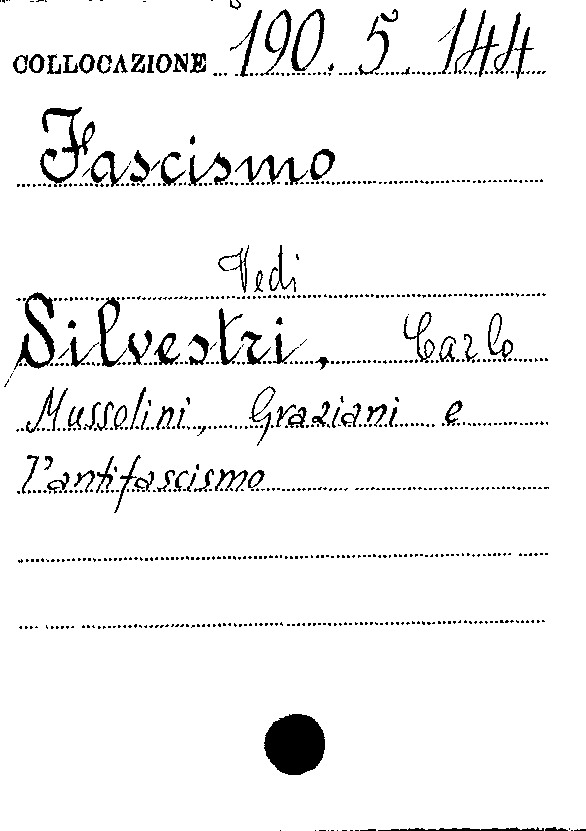 COLLOCAZIONE 190.5.144
Fascismo
Vedi
Silvestri, Carlo
Mussolini, Graziani e
l'antifascismo